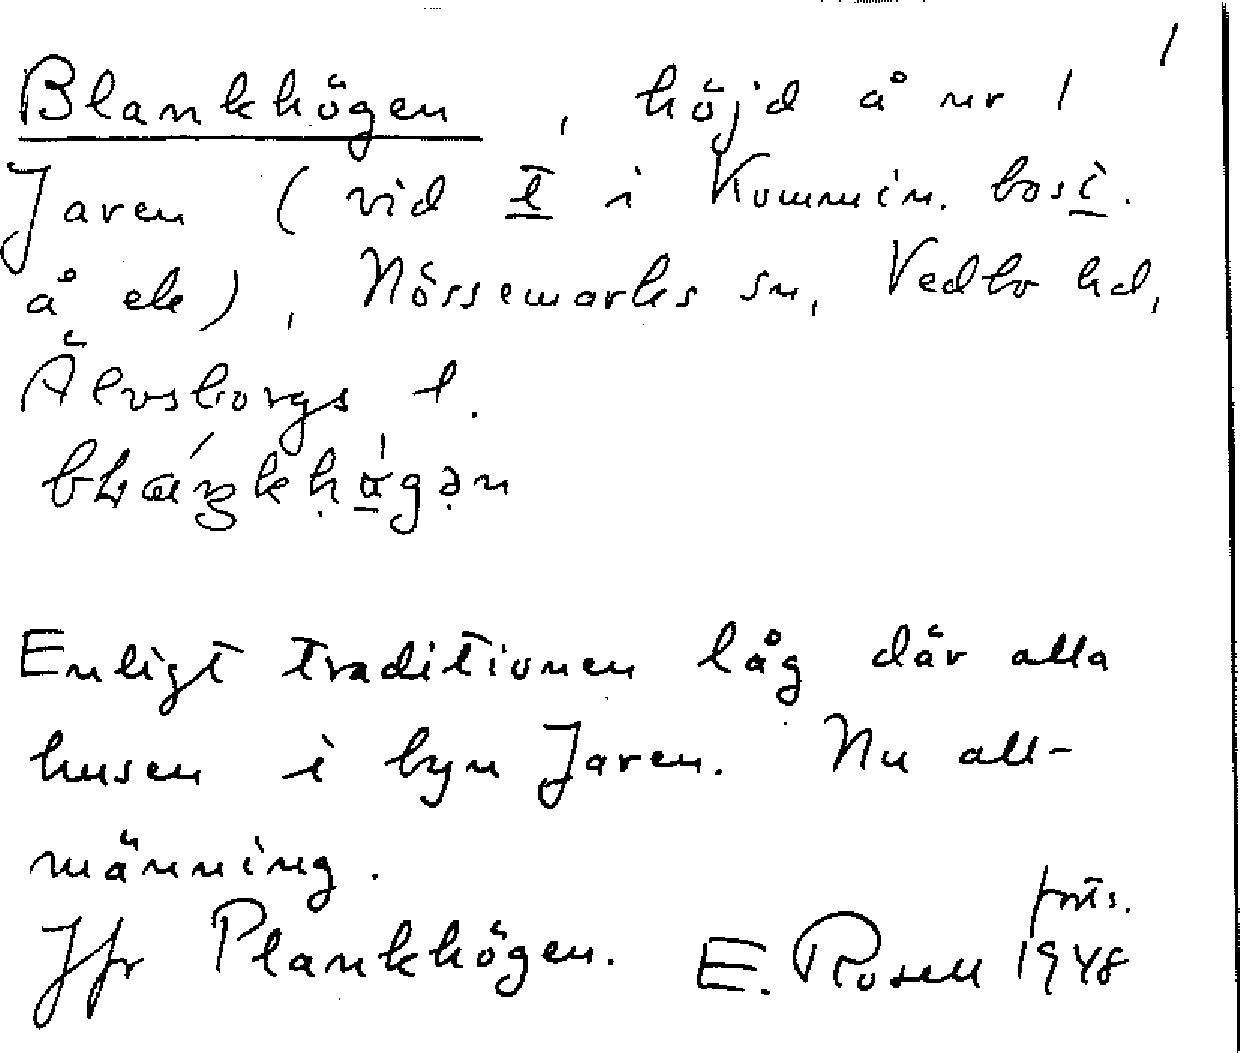 1
Blankhögen, höjd å nr 1
Jaren (vid t i Kommin. bosi.
å ek), Nössemarks sn, Vedbo hd,
Älvsborgs l.
Enligt traditionen låg där alla
husen i byn Jaren. Nu all-
männing.
forts.
Jfr Plankhögen. E. Rosell 1948